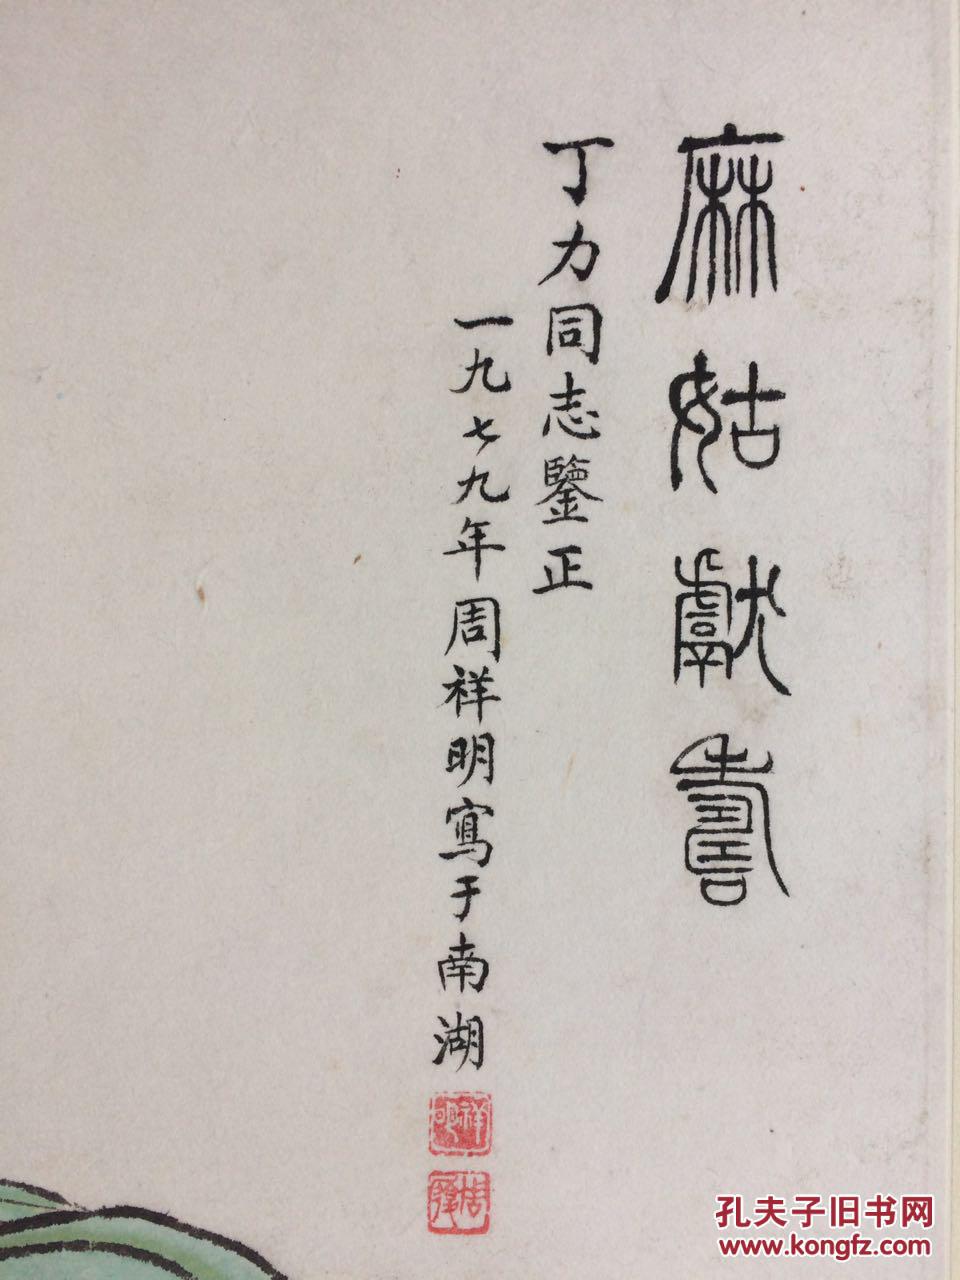 麻姑獻壽
丁力同志鑒正
一九七九年周祥明寫于南湖
祥明
孔夫子旧书网
www.kongfz.com